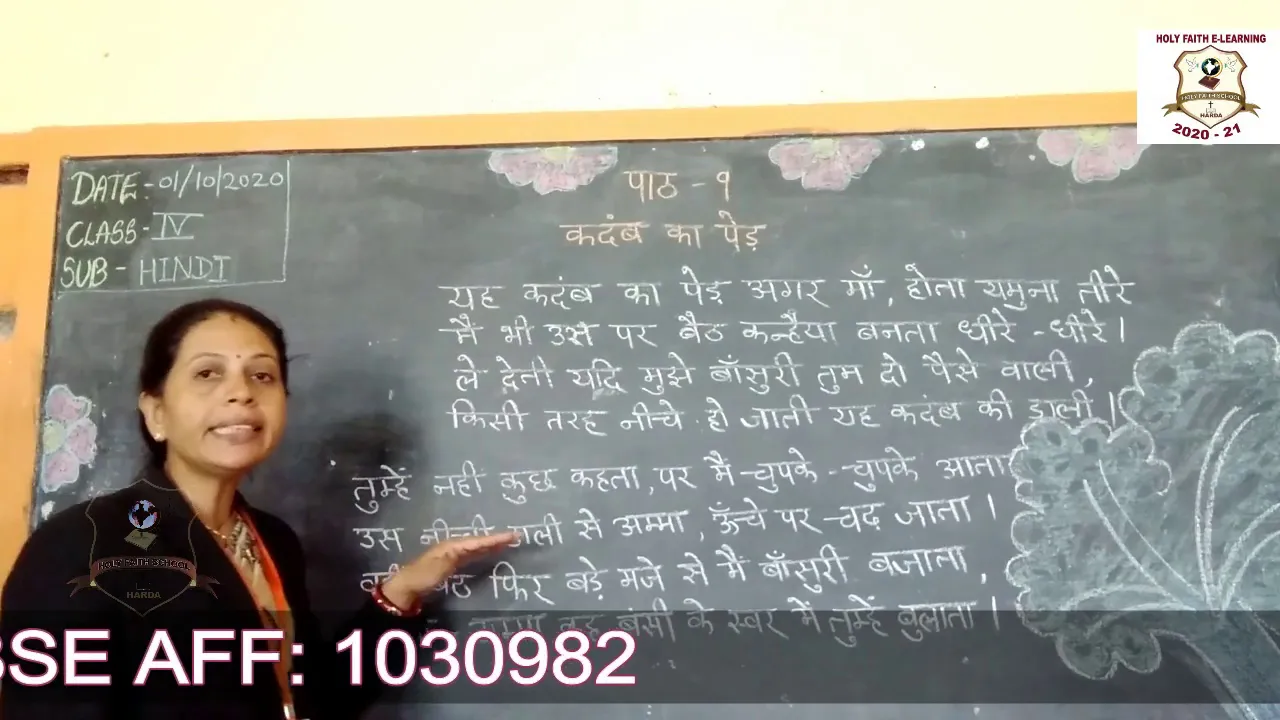 HOLY FAITH E-LEARNING
HOLY FAITH SCHOOL
HARDA
2020 - 21
DATE - 01/10/2020
CLASS - IV
SUB - HINDI
पाठ - १
कदंब का पेड़
यह कदंब का पेड़ अगर माँ, होता यमुना तीरे
मैं भी उस पर बैठ कन्हैया बनता धीरे - धीरे।
ले देती यदि मुझे बाँसुरी तुम दो पैसे वाली,
किसी तरह नीचे हो जाती यह कदंब की डाली।
तुम्हें नहीं कुछ कहता, पर मैं चुपके - चुपके आता
उस नीची डाली से अम्मा, ऊँचे पर चढ़ जाता।
बैठ फिर बड़े मजे से मैं बाँसुरी बजाता,
बंसी के स्वर में तुम्हें बुलाता।
HOLY FAITH SCHOOL
HARDA
BSE AFF: 1030982